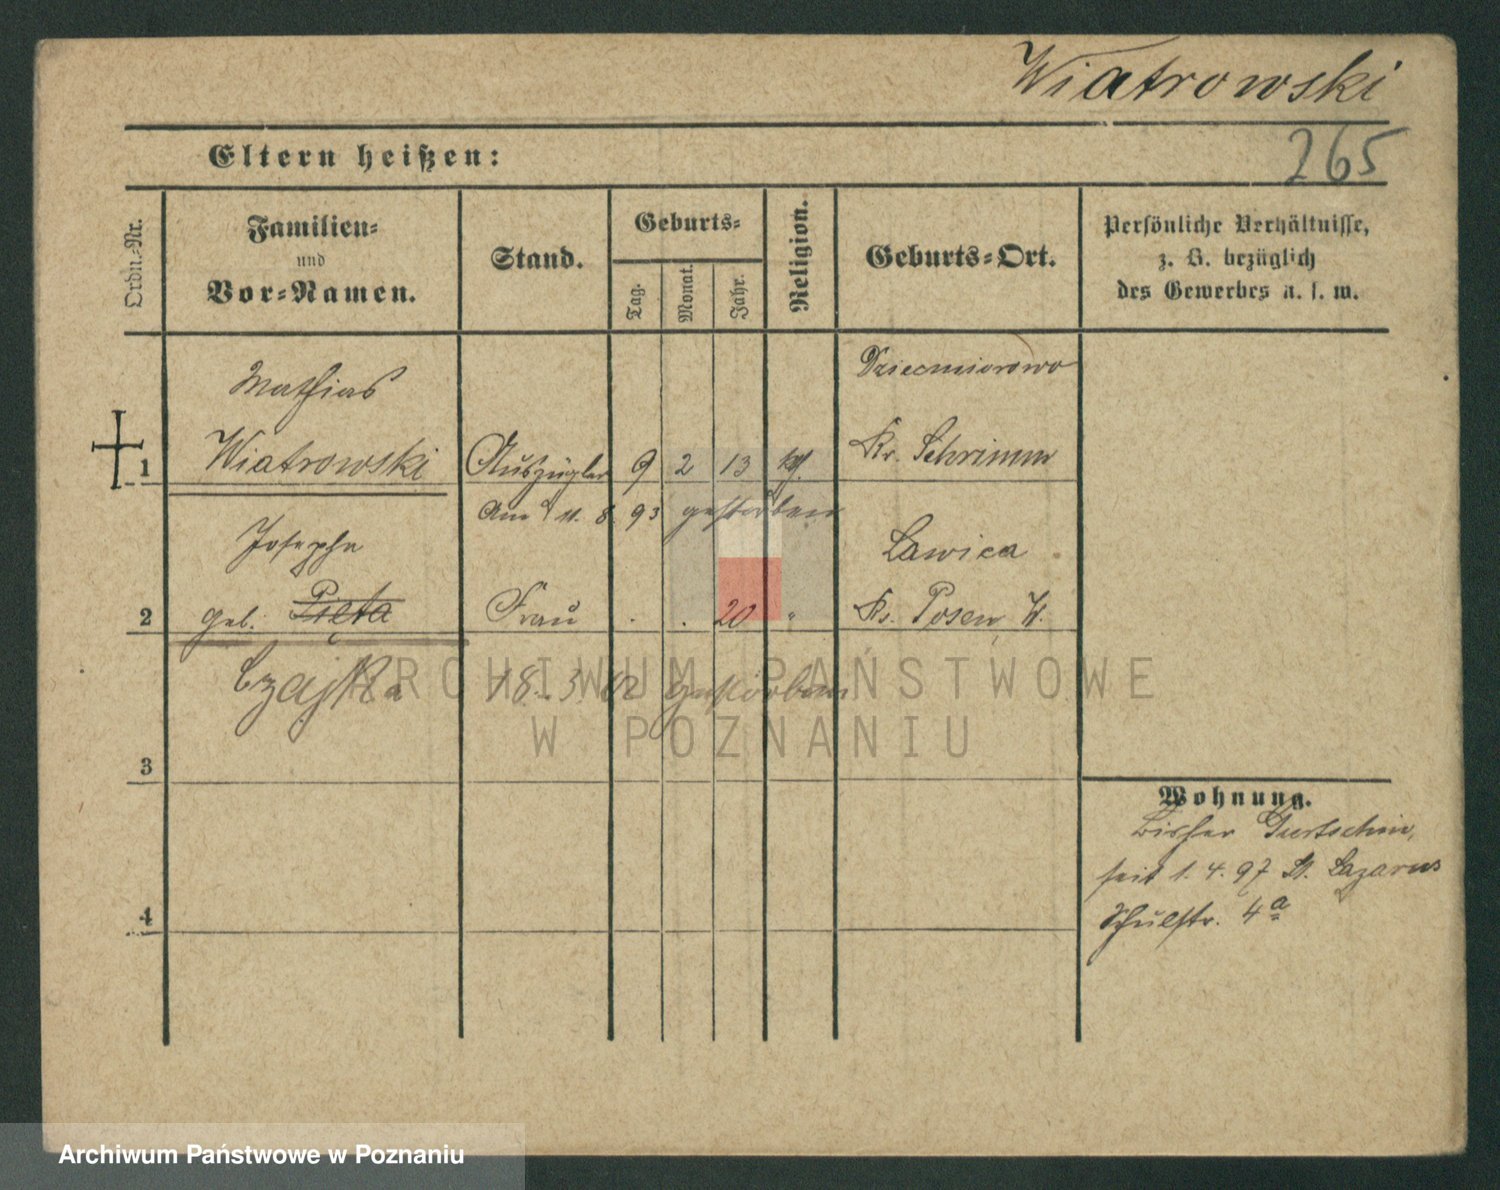 Wiatrowski
265
Eltern heißen:
Ordn.-Nr.
Familien-
und
Vor-Namen.
Stand.
Geburts-
Tag.
Monat.
Jahr.
Religion.
Geburts-Ort.
Persönliche Verhältnisse,
z. B. bezüglich
des Gewerbes u. s. w.
Mathias
Dziecmiorowo
1 Wiatrowski Auszügler 9 2 13 kt. Kr. Schrimm
Am 11. 8. 93 gestorben
Josepha
Lawica
2 geb. Pięta Frau . . 20 " Kr. Posen W.
Czajka 18. 3. 02 gestorben
3
4
Wohnung.
bisher Gurtschin,
seit 1. 4. 97 St. Lazarus
Schulstr. 4a
ARCHIWUM PAŃSTWOWE
W POZNANIU
Archiwum Państwowe w Poznaniu